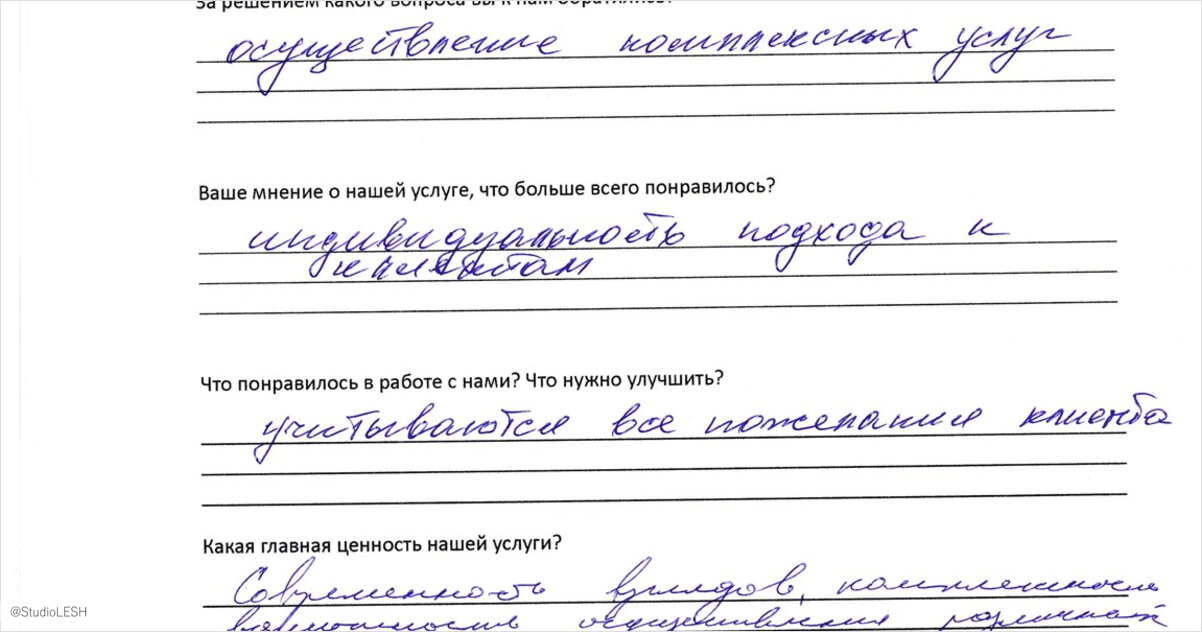 За решением какого вопроса вы к нам обратились?
осуществление комплексных услуг
Ваше мнение о нашей услуге, что больше всего понравилось?
индивидуальность подхода к
клиентам
Что понравилось в работе с нами? Что нужно улучшить?
учитываются все пожелания клиента
Какая главная ценность нашей услуги?
Современность взглядов, комплексность
возможность осуществления различных
@StudioLESH